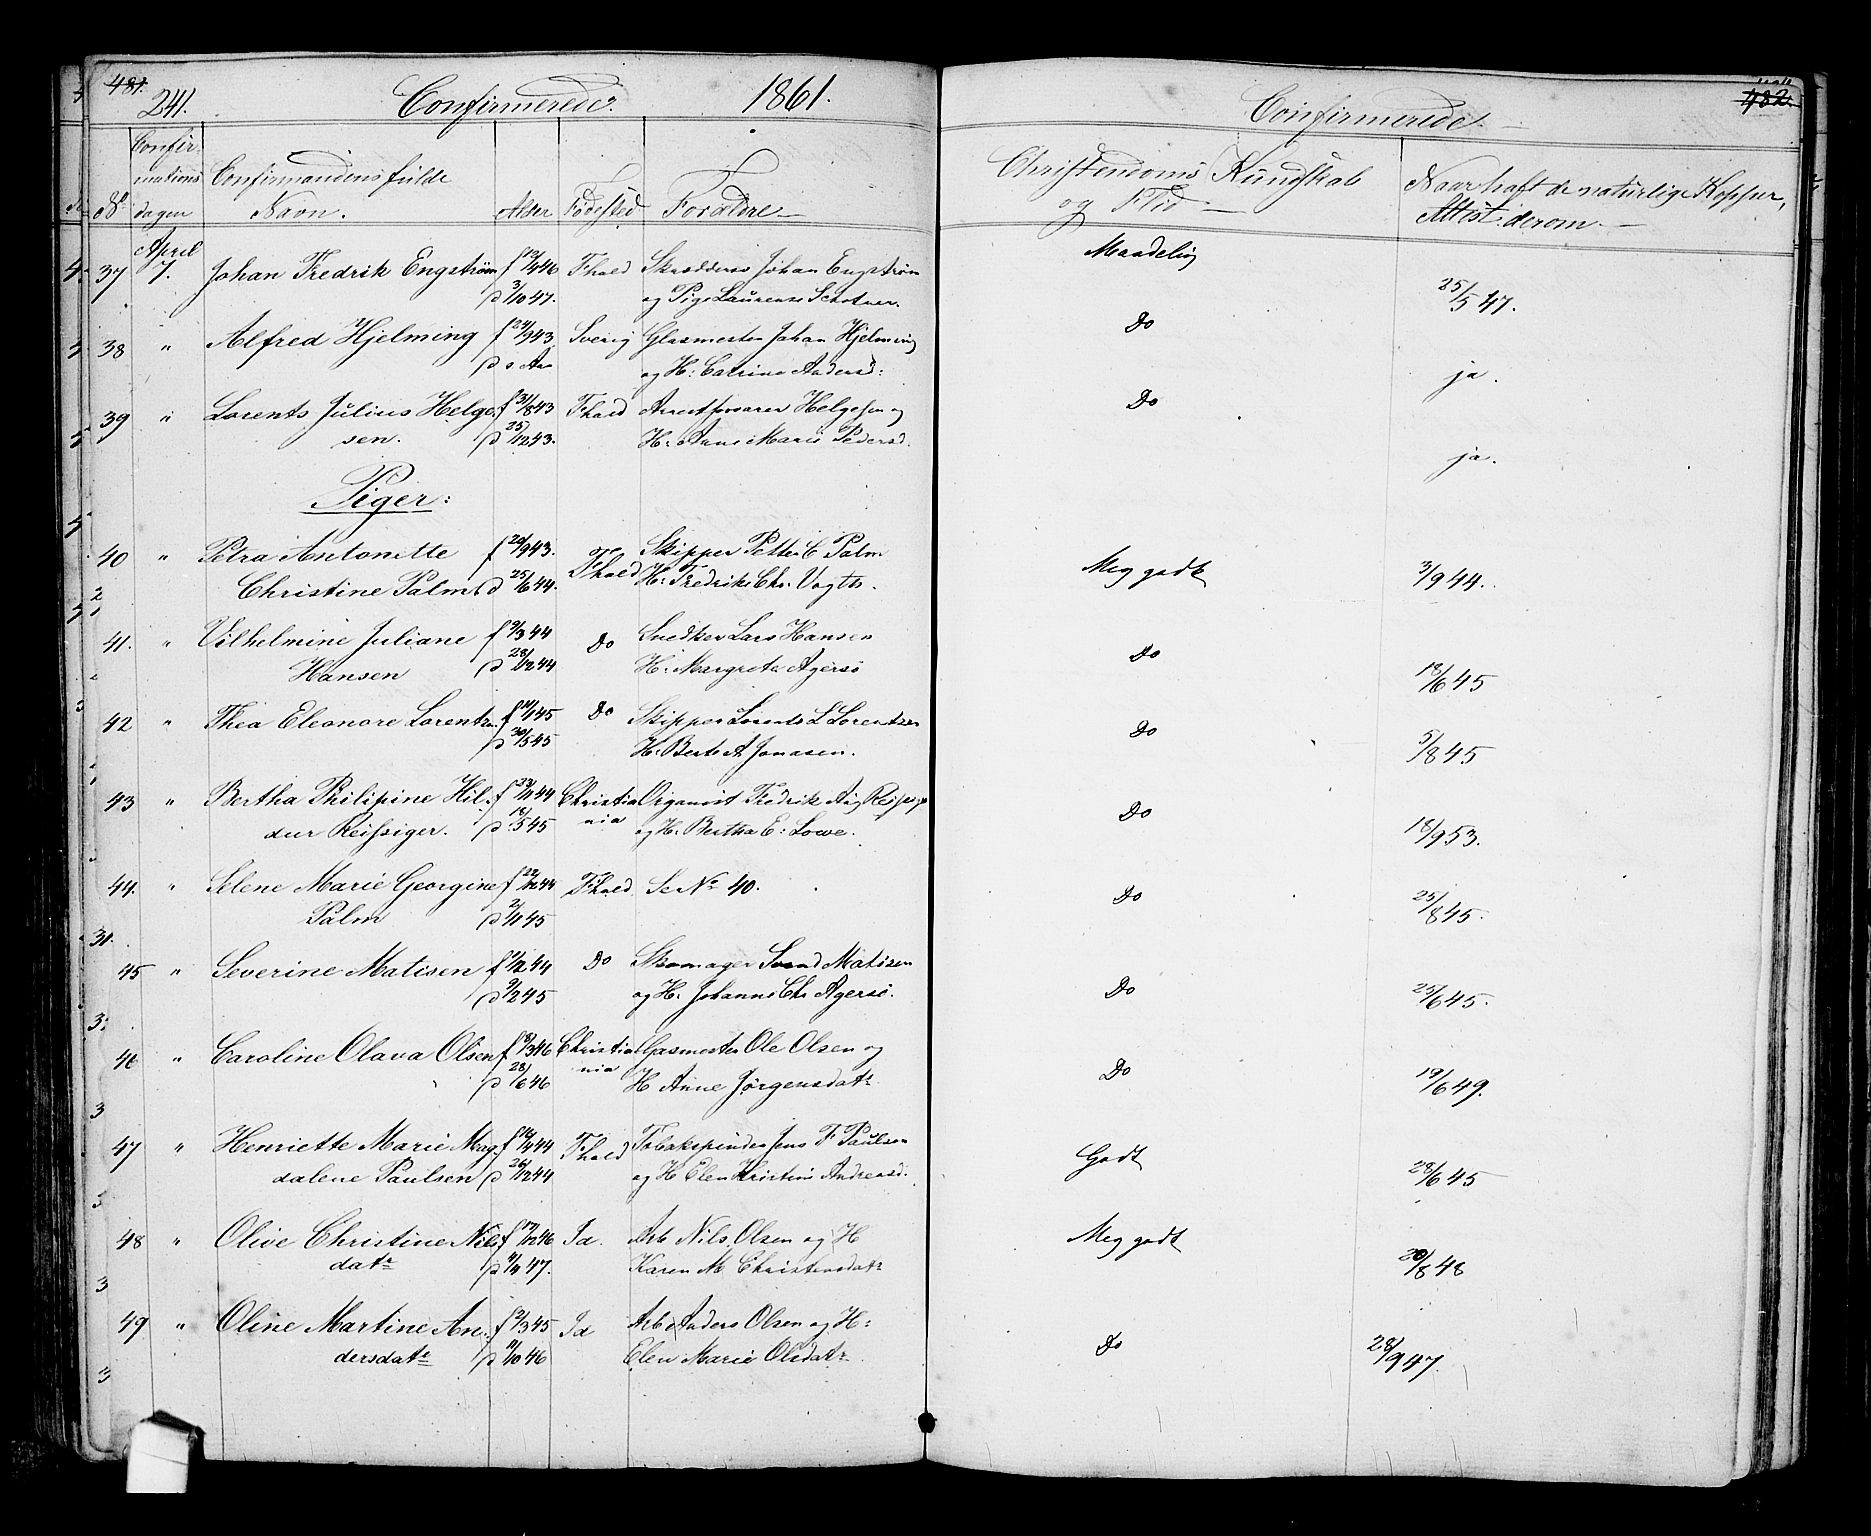 481. 241. Confirmerede. 1861.
Confirmerede. 482.
No Confirmations dagen Confirmandens fulde Navn. Alder Fødested Forældre
Christendoms Kundskab og Flid Naar haft de naturlige Kopper, Attest derom.
April
37 7. Johan Fredrik Engstrøm f 13/4 46 Fhald Skrædders Johan Engstrøm Maadelig
d 3/10 47. og Pige Laurense 25/5 47.
38 " Alfred Hjelming f 24/9 43. Sverig Glasmester Johan Hjelming Do
d s. Aa og H: Catrine Andersd: ja.
39 " Lorents Julius Helge- f 31/8 43 Fhald Arrestforvarer Helgesen og Do
sen. d 25/12 43. H: Anne Marie Pedersd. ja.
Piger:
40 " Petra Antonette f 20/9 43. Fhald Skipper Petter C Palm Meg godt
Christine Palm d 25/6 44. H: Fredrike Chr. Vogth. 3/9 44.
41. " Vilhelmine Juliane f 9/3 44 Do Snedker Lars Hansen Do
Hansen d 28/12 44 H: Margrete Agersø 18/6 45
42 " Thea Eleonore Lorentzen f 14/1 45 Do Skipper Lorents L Lorentzen Do
d 30/5 45 H: Berte A Jonasen. 5/8 45
43 " Bertha Philipine Hil- f 23/11 44 Christia Organist Fredrik Aug Reissiger Do
dur Reissiger. d 18/5 45 nia og H: Bertha E: Lowe. 18/9 53.
44. " Selene Marie Georgine f 22/12 44 Fhald. Se No 40. Do
Palm d 2/11 45 25/8 45.
45 " Severine Matisen f 1/12 44 Do Skomager Svend Matisen Do
d 9/2 45 og H. Johanne Chr Agersø. 25/6 45.
46 " Caroline Olava Olsen f 8/3 46 Christia Gasmester Ole Olsen og Do
d 28/6 46 nia H Anne Jørgensdatr 19/6 49.
47 " Henriette Marie Mag- f 18/4 44 Fhald Tobakspinder Jens F Paulsen Godt
dalene Paulsen d 26/12 44 og H Elen Kristine Andreasd. 28/6 45
48 " Olive Christine Nils- f 17/12 46 Id. Arb Nils Olsen og H Meg godt
datr d 11/4 47. Karen M Christensdatr 20/8 48
49 " Oline Martine An- f 2/3 45 Id Arb Anders Olsen og H: Do
dersdatr d 11/10 46 Elen Marie Olsdatr 28/9 47.